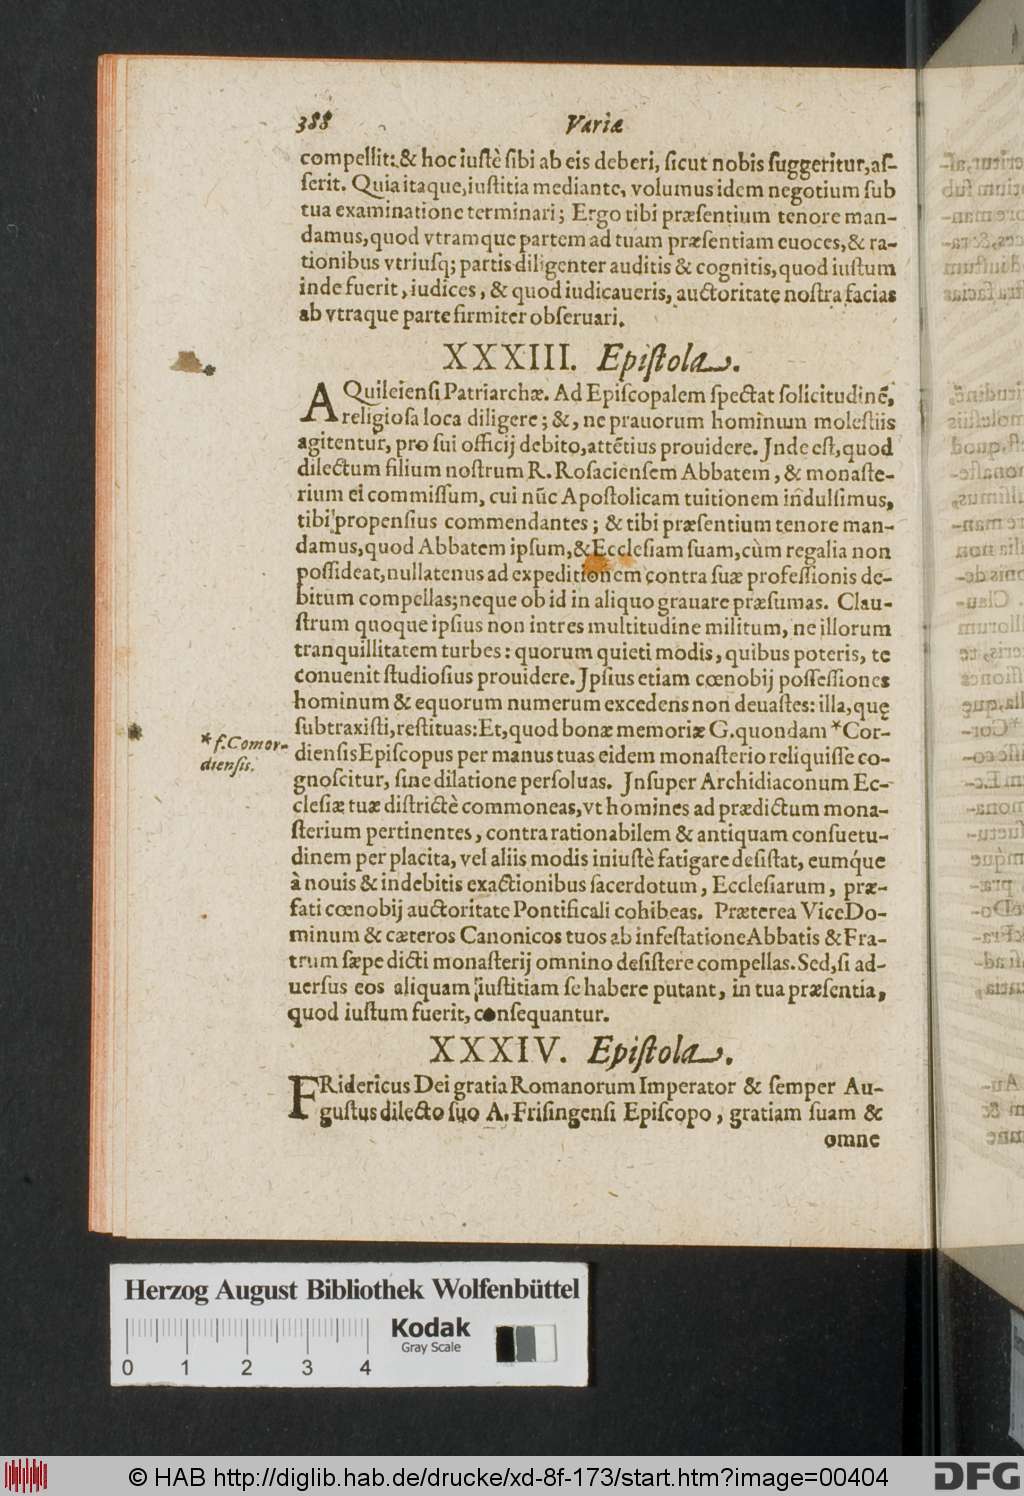 388 Variæ
compellit: & hoc iustè sibi ab eis deberi, sicut nobis suggeritur, as-
serit. Quia itaque, iustitia mediante, volumus idem negotium sub
tua examinatione terminari; Ergo tibi præsentium tenore man-
damus, quod vtramque partem ad tuam præsentiam euoces, & ra-
tionibus vtriusq; partis diligenter auditis & cognitis, quod iustum
inde fuerit, iudices, & quod iudicaueris, auctoritate nostra facias
ab vtraque parte firmiter obseruari.
XXXIII. Epistola.
AQuileiensi Patriarchæ. Ad Episcopalem spectat solicitudinē,
religiosa loca diligere; &, ne prauorum hominum molestiis
agitentur, pro sui officij debito, attētius prouidere. Jnde est, quod
dilectum filium nostrum R. Rosaciensem Abbatem, & monaste-
rium ei commissum, cui nūc Apostolicam tuitionem indulsimus,
tibi propensius commendantes; & tibi præsentium tenore man-
damus, quod Abbatem ipsum, & Ecclesiam suam, cùm regalia non
possideat, nullatenus ad expeditionem contra suæ professionis de-
bitum compellas; neque ob id in aliquo grauare præsumas. Clau-
strum quoque ipsius non intres multitudine militum, ne illorum
tranquillitatem turbes: quorum quieti modis, quibus poteris, te
conuenit studiosius prouidere. Jpsius etiam cœnobij possessiones
hominum & equorum numerum excedens non deuastes: illa, quę
subtraxisti, restituas: Et, quod bonæ memoriæ G. quondam *Cor-
diensis Episcopus per manus tuas eidem monasterio reliquisse co-
gnoscitur, sine dilatione persoluas. Jnsuper Archidiaconum Ec-
clesiæ tuæ districtè commoneas, vt homines ad prædictum mona-
sterium pertinentes, contra rationabilem & antiquam consuetu-
dinem per placita, vel aliis modis iniustè fatigare desistat, eumq́ue
à nouis & indebitis exactionibus sacerdotum, Ecclesiarum, præ-
fati cœnobij auctoritate Pontificali cohibeas. Præterea ViceDo-
minum & cæteros Canonicos tuos ab infestatione Abbatis & Fra-
trum sæpe dicti monasterij omnino desistere compellas. Sed, si ad-
uersus eos aliquam iustitiam se habere putant, in tua præsentia,
quod iustum fuerit, consequantur.
* f. Comor-
diensis.
XXXIV. Epistola.
FRidericus Dei gratia Romanorum Imperator & semper Au-
gustus dilecto suo A. Frisingensi Episcopo, gratiam suam &
omne
Herzog August Bibliothek Wolfenbüttel
Kodak
Gray Scale
0 1 2 3 4
© HAB http://diglib.hab.de/drucke/xd-8f-173/start.htm?image=00404
DFG